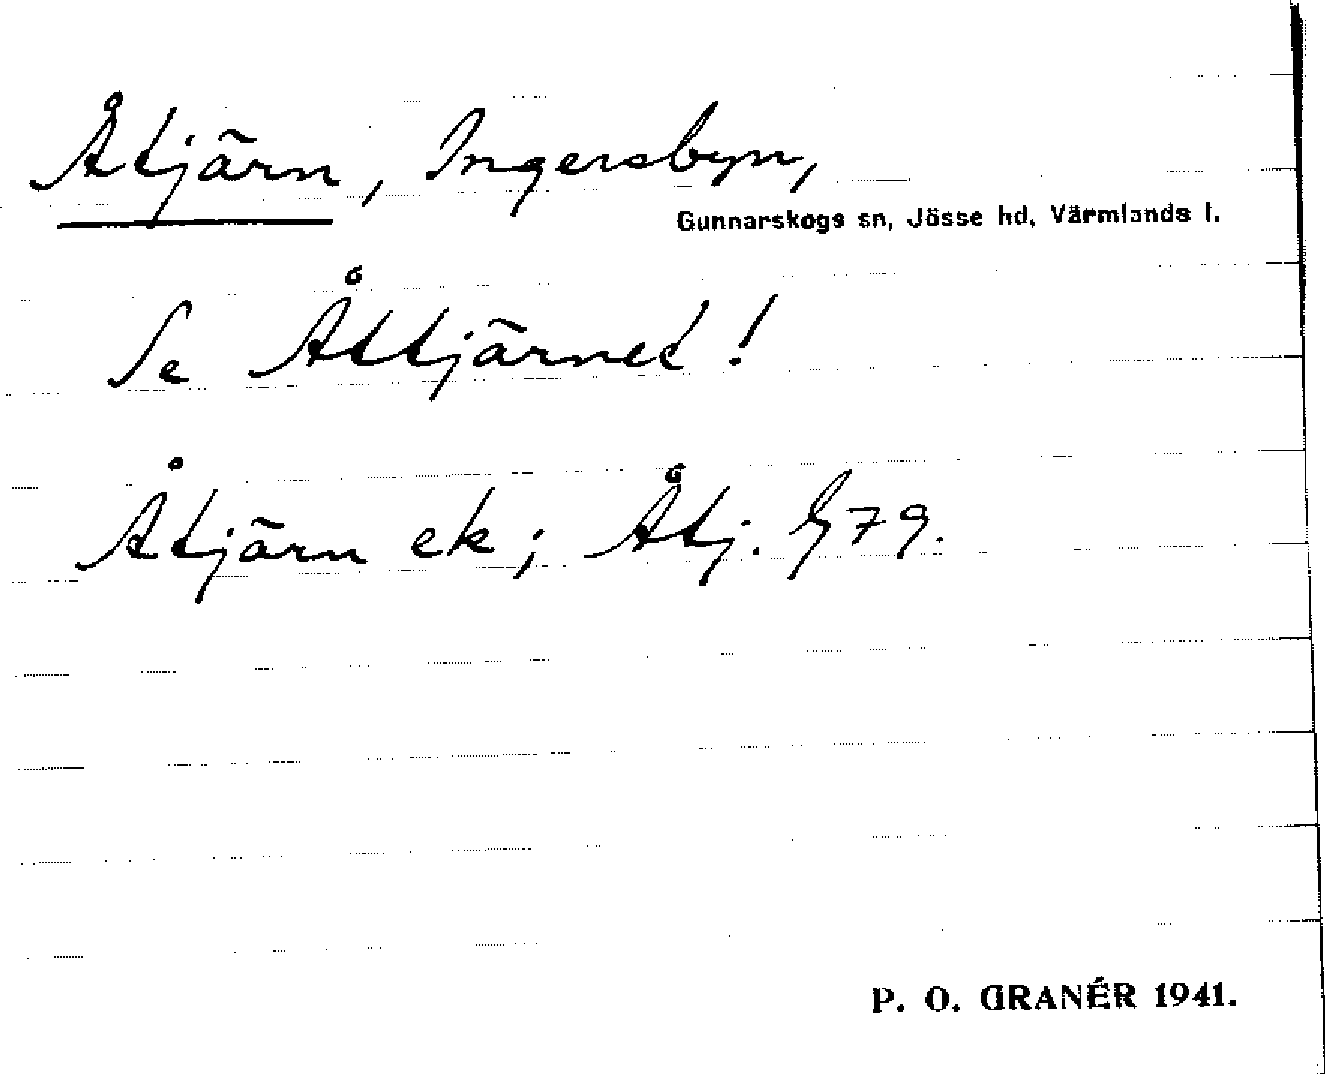 Åtjärn, Ingersbyn,
Gunnarskogs sn, Jösse hd, Värmlands l.
Se Åttjärnet!
Åtjärn ek; Åtj. G79.
P. O. GRANÉR 1941.